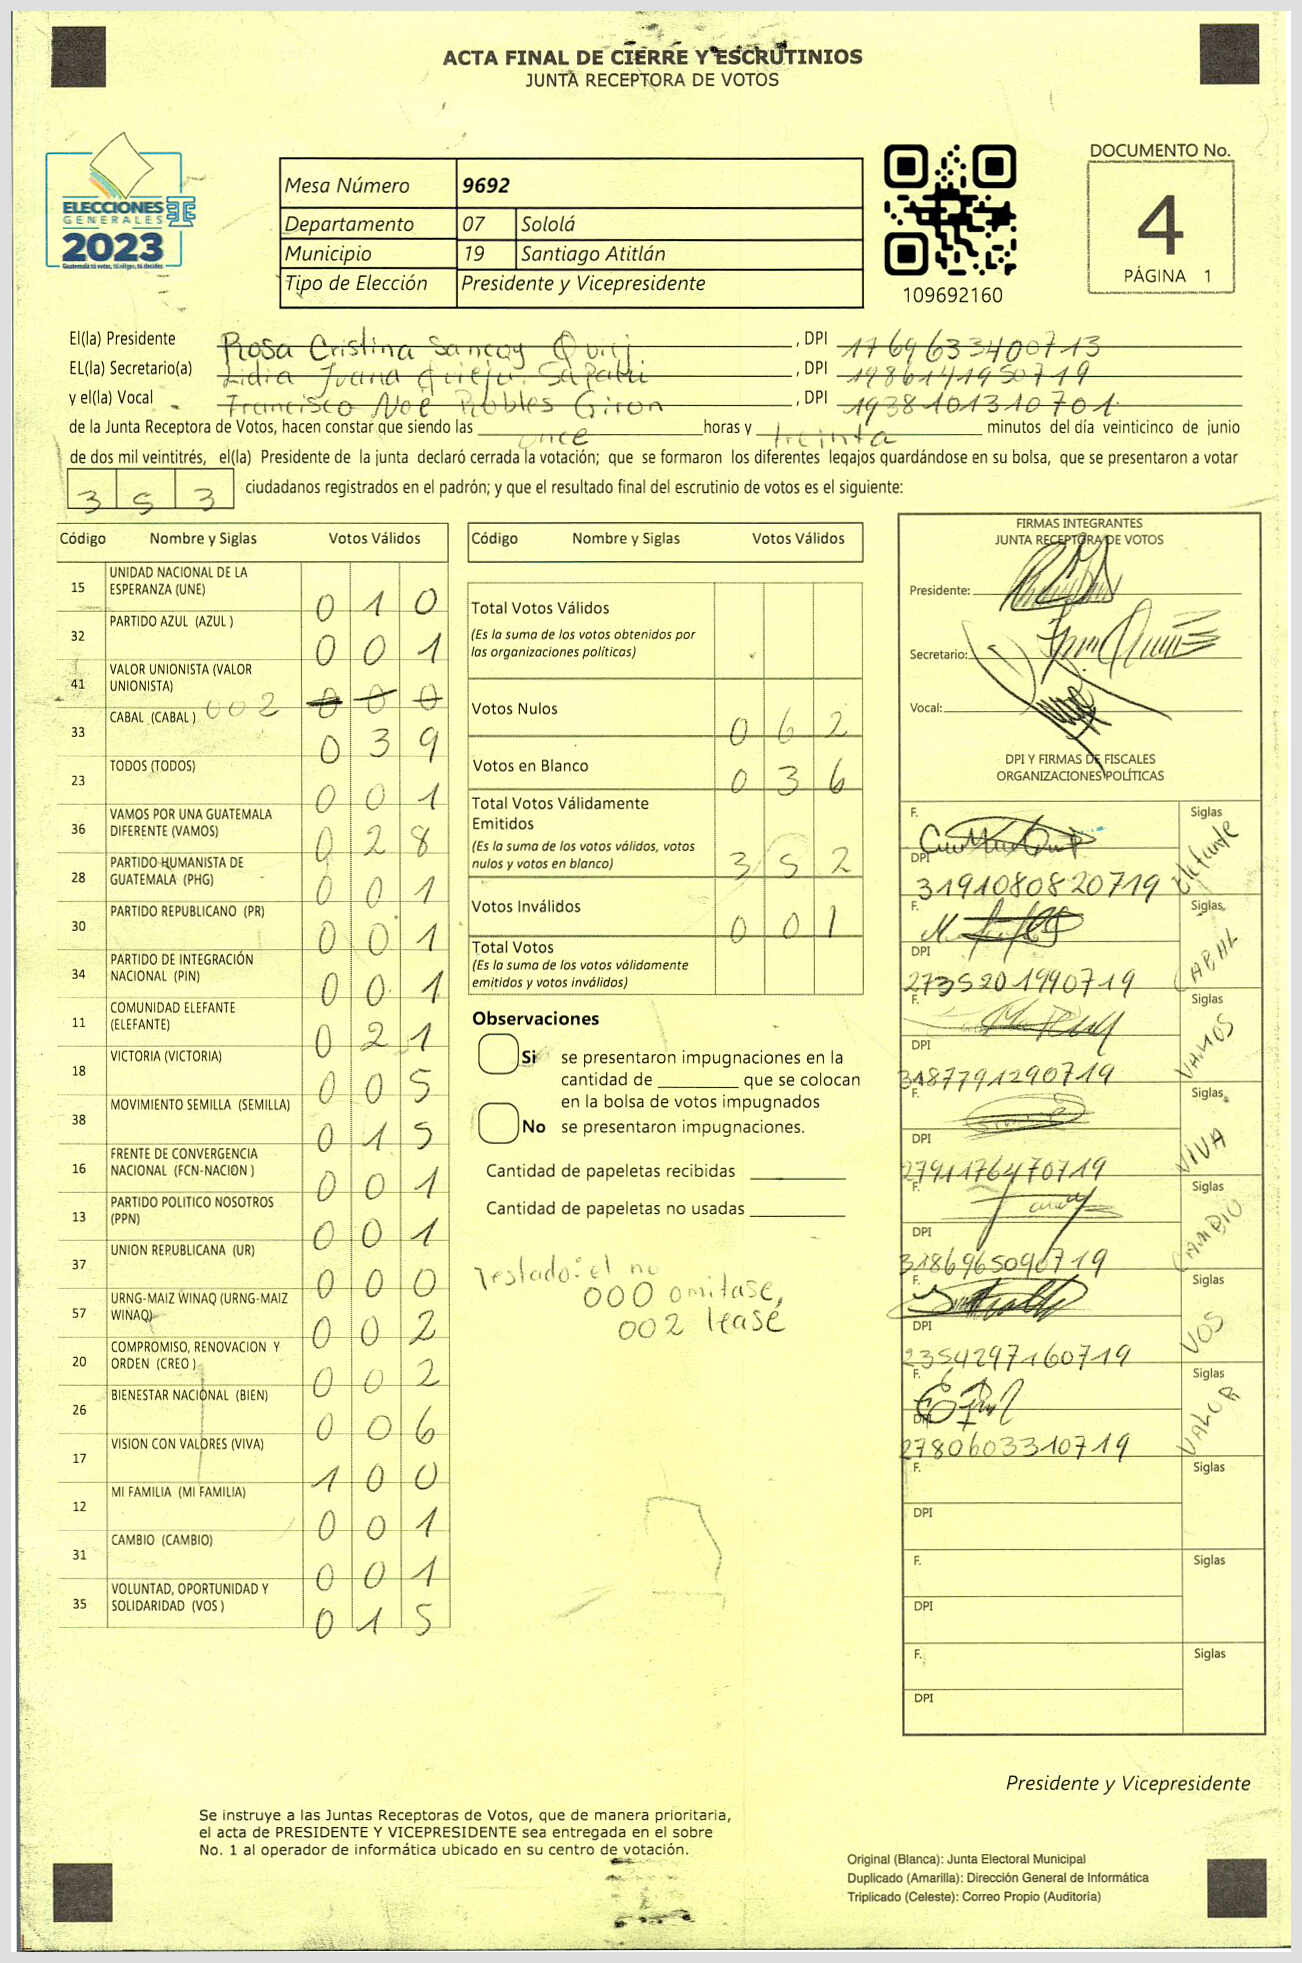 ACTA FINAL DE CIERRE Y ESCRUTINIOS
JUNTA RECEPTORA DE VOTOS
ELECCIONES
GENERALES
2023
Guatemala tú votas, tú eliges, tú decides
Mesa Número 9692
Departamento 07 Sololá
Municipio 19 Santiago Atitlán
Tipo de Elección Presidente y Vicepresidente
109692160
DOCUMENTO No.
4
PÁGINA 1
El(la) Presidente Rosa Cristina Sancoy Quiej, DPI 1769633400713
EL(la) Secretario(a) Lidia Juana Quieju Sapalú, DPI 1986141950719
y el(la) Vocal Francisco Noé Robles Giron, DPI 1938101310701
de la Junta Receptora de Votos, hacen constar que siendo las once horas y treinta minutos del día veinticinco de junio
de dos mil veintitrés, el(la) Presidente de la junta declaró cerrada la votación; que se formaron los diferentes legajos guardándose en su bolsa, que se presentaron a votar
3 5 3 ciudadanos registrados en el padrón; y que el resultado final del escrutinio de votos es el siguiente:
Código Nombre y Siglas Votos Válidos
15 UNIDAD NACIONAL DE LA ESPERANZA (UNE) 0 1 0
32 PARTIDO AZUL (AZUL ) 0 0 1
41 VALOR UNIONISTA (VALOR UNIONISTA) 002 0 0 0
33 CABAL (CABAL ) 0 3 9
23 TODOS (TODOS) 0 0 1
36 VAMOS POR UNA GUATEMALA DIFERENTE (VAMOS) 0 2 8
28 PARTIDO HUMANISTA DE GUATEMALA (PHG) 0 0 1
30 PARTIDO REPUBLICANO (PR) 0 0 1
34 PARTIDO DE INTEGRACIÓN NACIONAL (PIN) 0 0 1
11 COMUNIDAD ELEFANTE (ELEFANTE) 0 2 1
18 VICTORIA (VICTORIA) 0 0 5
38 MOVIMIENTO SEMILLA (SEMILLA) 0 1 5
16 FRENTE DE CONVERGENCIA NACIONAL (FCN-NACION ) 0 0 1
13 PARTIDO POLITICO NOSOTROS (PPN) 0 0 1
37 UNION REPUBLICANA (UR) 0 0 0
57 URNG-MAIZ WINAQ (URNG-MAIZ WINAQ) 0 0 2
20 COMPROMISO, RENOVACION Y ORDEN (CREO ) 0 0 2
26 BIENESTAR NACIONAL (BIEN) 0 0 6
17 VISION CON VALORES (VIVA) 1 0 0
12 MI FAMILIA (MI FAMILIA) 0 0 1
31 CAMBIO (CAMBIO) 0 0 1
35 VOLUNTAD, OPORTUNIDAD Y SOLIDARIDAD (VOS ) 0 1 5
Código Nombre y Siglas Votos Válidos
Total Votos Válidos
(Es la suma de los votos obtenidos por
las organizaciones políticas)
Votos Nulos 0 6 2
Votos en Blanco 0 3 6
Total Votos Válidamente
Emitidos
(Es la suma de los votos válidos, votos
nulos y votos en blanco) 3 5 2
Votos Inválidos 0 0 1
Total Votos
(Es la suma de los votos válidamente
emitidos y votos inválidos)
Observaciones
Si se presentaron impugnaciones en la
cantidad de ________ que se colocan
en la bolsa de votos impugnados
No se presentaron impugnaciones.
Cantidad de papeletas recibidas
Cantidad de papeletas no usadas
Testado: el no
000 omitase,
002 lease
FIRMAS INTEGRANTES
JUNTA RECEPTORA DE VOTOS
Presidente:
Secretario:
Vocal:
DPI Y FIRMAS DE FISCALES
ORGANIZACIONES POLÍTICAS
F. Siglas Elefante
DPI 3191080820719
F. Siglas CABAL
DPI 2735201990719
F. Siglas VAMOS
DPI 3187791290719
F. Siglas VIVA
DPI 2791176470719
F. Siglas CAMBIO
DPI 3186965090719
F. Siglas VOS
DPI 2354297160719
F. Siglas VALOR
DPI 2780603310719
F. Siglas
DPI
F. Siglas
DPI
F. Siglas
DPI
Presidente y Vicepresidente
Se instruye a las Juntas Receptoras de Votos, que de manera prioritaria,
el acta de PRESIDENTE Y VICEPRESIDENTE sea entregada en el sobre
No. 1 al operador de informática ubicado en su centro de votación.
Original (Blanca): Junta Electoral Municipal
Duplicado (Amarilla): Dirección General de Informática
Triplicado (Celeste): Correo Propio (Auditoría)